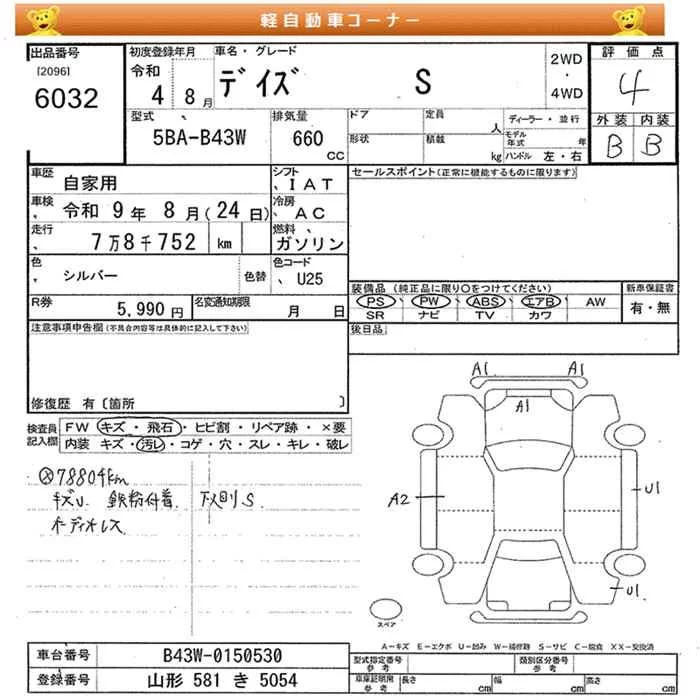 軽自動車コーナー
出品番号
[2096]
6032
初度登録年月
令和
4 8 月
車名・グレード
デイズ S
2WD
・
4WD
評価点
4
外装 内装
B B
型式
5BA-B43W
排気量
660
CC
ドア
形状
定員
人
積載
kg
ディーラー・並行
モデル年式 年
ハンドル 左・右
車歴
自家用
シフト
IAT
車検
令和 9 年 8 月(24 日)
冷房
AC
走行
7万8千752 km
燃料
ガソリン
色
シルバー
色替
色コード
U25
R券
5,990 円
名変通知期限
月 日
セールスポイント(正常に機能するものに限ります)
装備品 (純正品に限り〇をつけてください)
PS PW ABS エアB AW
SR ナビ TV カワ
新車保証書
有・無
後日品
注意事項申告欄(不具合内容等は具体的に記入して下さい)
修復歴 有〔箇所 〕
検査員記入欄
FW キズ・飛石・ヒビ割・リペア跡・×要
内装 キズ・汚レ・コゲ・穴・スレ・キレ・破レ
78804km
キズU. 鉄粉付着. 下回りS.
オーディオレス
A1 A1
A1
A2
U1
U1
スペア
A-キズ E-エクボ U-凹み W-補修跡 S-サビ C-腐食 XX-交換済
車台番号
B43W-0150530
登録番号
山形 581 き 5054
型式指定番号
参考
類別区分番号
参考
車庫証明用
参考
長さ cm
幅 cm
高さ cm